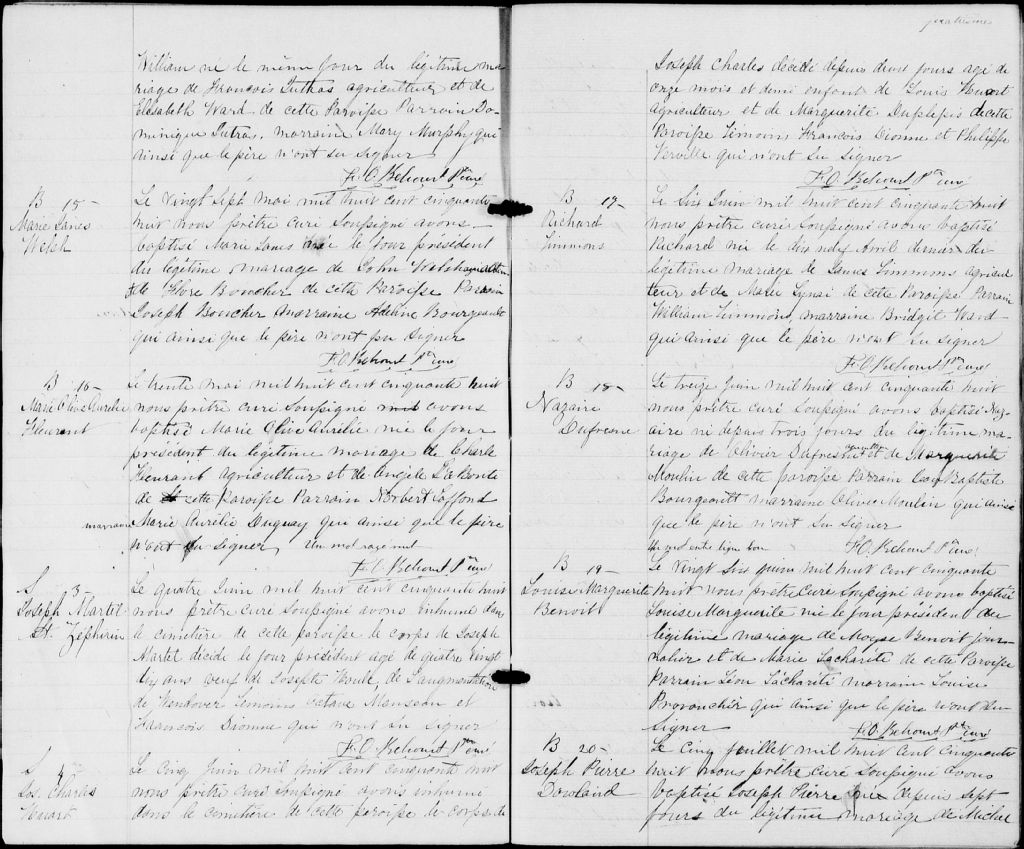 William né le même jour du légitime ma-
riage de François Dutras agriculteur et de
Elisabeth Ward de cette Paroisse Parrain Do-
minique Dutras, marraine Mary Murphy qui
ainsi que le père n'ont su signer
Ptre curé
B 15-
Marie Janes
Welsh
Le vingt sept mai mil huit cent cinquante
huit nous prêtre curé soussigné avons
baptisé Marie Janes née le jour président
du légitime mariage de John Welsh
et de Flore Boucher de cette Paroisse Parrain
Joseph Boucher marraine Adeline Bourgeault
qui ainsi que le père n'ont pu signer
Ptre curé
B 16-
Marie Olive Aurelie
Fleurant
Le trente mai mil huit cent cinquante huit
nous prêtre curé soussigné avons
baptisé Marie Olive Aurélie née le jour
président du légitime mariage de Charle
Fleurant agriculteur et de Angèle LaBonte
de cette paroisse Parrain Norbert
marraine Marie Aurélie Duguay qui ainsi que le père
n'ont su signer un mot rayé nul
Ptre curé
S 3-
Joseph Martel
St. Zéphirin
Le quatre Juin mil huit cent cinquante huit
nous prêtre curé soussigné avons inhumé dans
le cimetière de cette paroisse le corps de Joseph
Martel décidé le jour président agé de quatre vingt
dix ans veuf de Josephte de L'augmentation
de Wendover Temoins Octave Manseau et
Francois Dionne qui n'ont su signer
Ptre curé
S 4
Jos. Charles
Huart
Le Cinq Juin mil huit cent cinquante huit
nous prêtre curé soussigné avons inhumé
dans le cimetière de cette paroisse le corps de
Joseph Charles décédé depuis deux jours agé de
onze mois et demi enfant de Louis Huart
agriculteur et de Marguerite Duplessis de cette
Paroisse Temoins Francois Dionne et Philippe
Verville qui n'ont su signer
Ptre curé
B 17-
Richard
Timmons
Le Six Juin mil huit cent cinquante huit
nous prêtre curé soussigné avons baptisé
Richard né le dix neuf Avril dernier du
légitime mariage de James Timmons agricul
teur et de Marie de cette Paroisse Parrain
William Timmons, marraine Bridget Ward
qui ainsi que le père n'ont su signer
Ptre curé
B 18-
Nazaire
Dufresne
Le treize Juin mil huit cent cinquante huit
nous prêtre curé soussigné avons baptisé Naz-
aire né depuis trois jours du légitime ma-
riage de Olivier Dufresne et de Marguerite
Moulin de cette paroisse Parrain Jean Baptiste
Bourgeault marraine Olive Moulin qui ainsi
que le père n'ont su signer
Un mot entre ligne bon
Ptre curé
B 19-
Louise Marguerite
Benoit
Le vingt six Juin mil huit cent cinquante
huit nous prêtre Curé soussigné avons baptisé
Louise Marguerite née le jour président du
légitime mariage de Moyse Benoit jour-
nalier et de Marie Lacharité de cette Paroisse
Parrain Léon Lacharité marraine Louise
Provencher qui ainsi que le père n'ont su
signer
Ptre curé
B 20-
Joseph Pierre
Dowland
Le Cinq Juillet mil huit cent cinquante
huit nous prêtre curé soussigné avons
baptisé Joseph Pierre né depuis sept
jours du légitime mariage de Michel